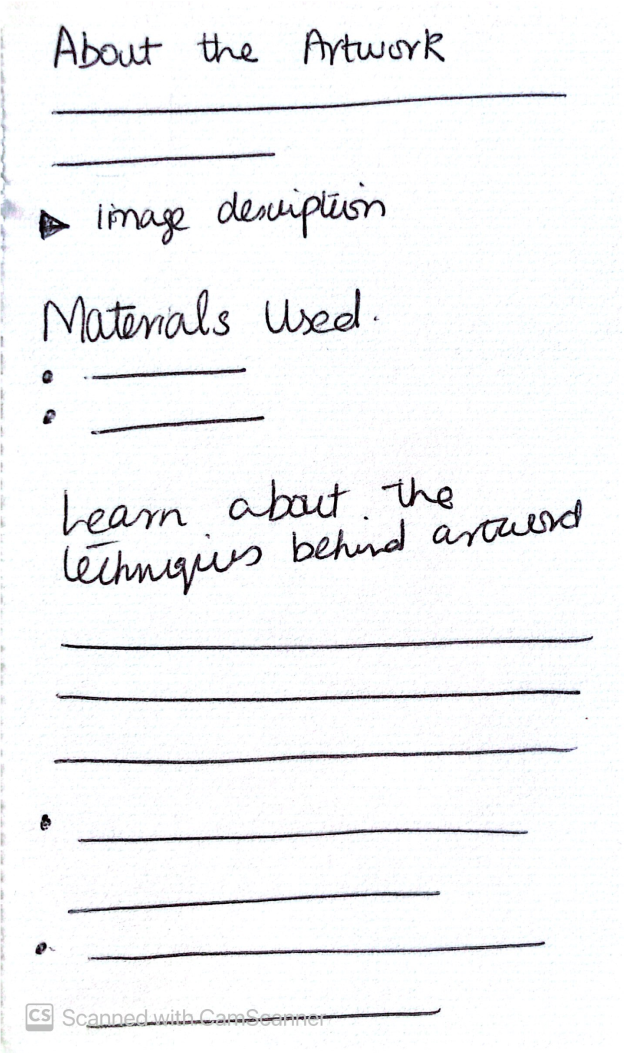 About the Artwork
image description
Materials Used.
Learn about the
techniques behind artword
CS Scanned with CamScanner